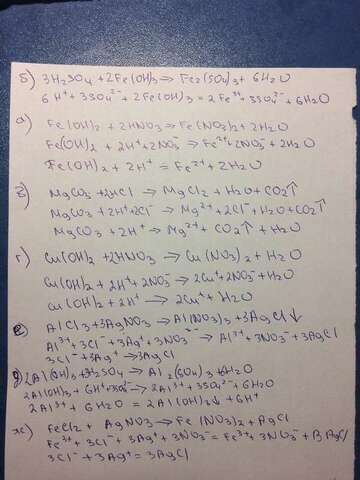 б) 3H₂SO₄ + 2Fe(OH)₃ → Fe₂(SO₄)₃ + 6H₂O
6H⁺ + 3SO₄²⁻ + 2Fe(OH)₃ = 2Fe³⁺ + 3SO₄²⁻ + 6H₂O
а) Fe(OH)₂ + 2HNO₃ → Fe(NO₃)₂ + 2H₂O
Fe(OH)₂ + 2H⁺ + 2NO₃⁻ → Fe²⁺ + 2NO₃⁻ + 2H₂O
Fe(OH)₂ + 2H⁺ = Fe²⁺ + 2H₂O
в) MgCO₃ + 2HCl → MgCl₂ + H₂O + CO₂↑
MgCO₃ + 2H⁺ 2Cl⁻ → Mg²⁺ + 2Cl⁻ + H₂O + CO₂↑
MgCO₃ + 2H⁺ → Mg²⁺ + CO₂↑ + H₂O
г) Cu(OH)₂ + 2HNO₃ → Cu(NO₃)₂ + H₂O
Cu(OH)₂ + 2H⁺ + 2NO₃⁻ → 2Cu⁺ + 2NO₃⁻ + H₂O
Cu(OH)₂ + 2H⁺ → 2Cu⁺ + H₂O
е) AlCl₃ + 3AgNO₃ → Al(NO₃)₃ + 3AgCl↓
Al³⁺ + 3Cl⁻ + 3Ag⁺ + 3NO₃⁻ → Al³⁺ + 3NO₃⁻ + 3AgCl
3Cl⁻ + 3Ag⁺ → 3AgCl
д) 2Al(OH)₃ + 3H₂SO₄ → Al₂(SO₄)₃ + 6H₂O
2Al(OH)₃ + 6H⁺ + 3SO₄²⁻ → 2Al³⁺ + 3SO₄²⁻ + 6H₂O
2Al³⁺ + 6H₂O = 2Al(OH)₃↓ + 6H⁺
ж) FeCl₂ + AgNO₃ → Fe(NO₃)₂ + AgCl
Fe³⁺ + 3Cl⁻ + 3Ag⁺ + 3NO₃⁻ = Fe³⁺ + 3NO₃⁻ + 3AgCl
3Cl⁻ + 3Ag⁺ = 3AgCl